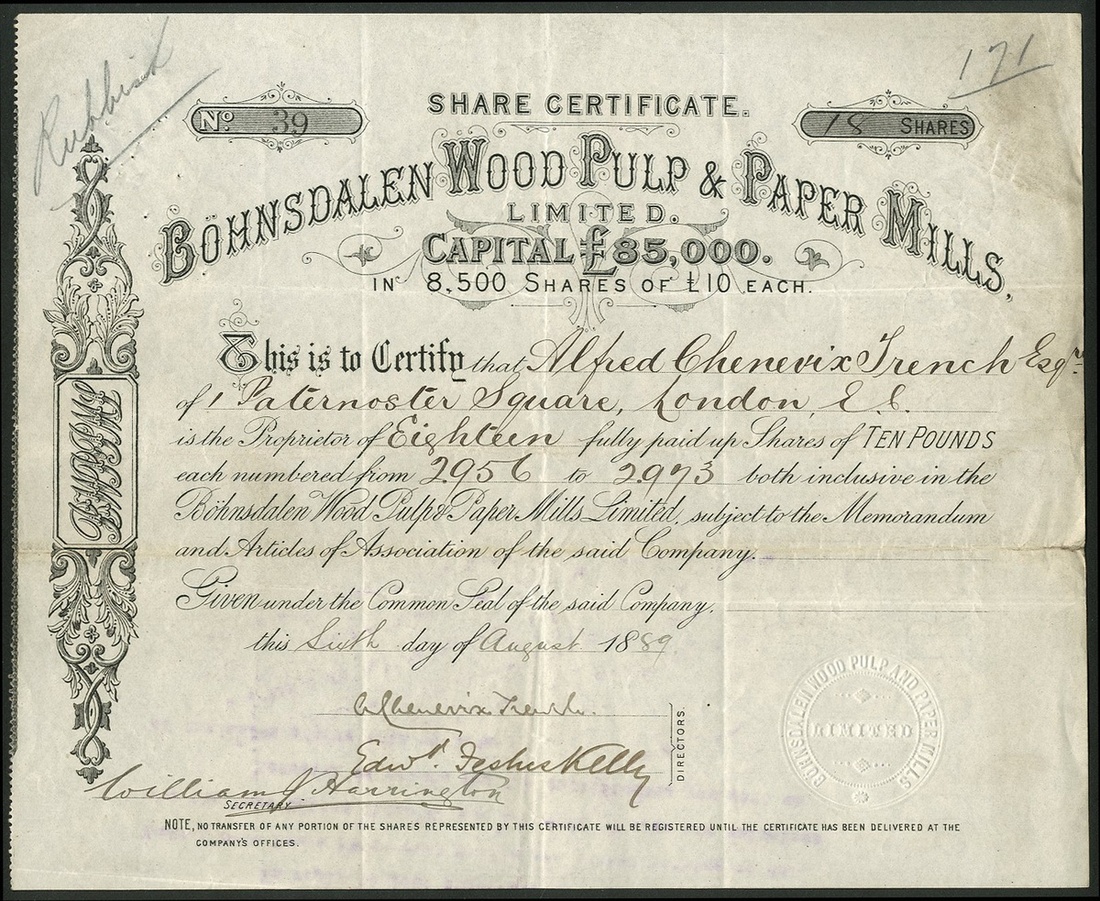 Rubbish
171
SHARE CERTIFICATE.
No 39
18 SHARES
BÖHNSDALEN WOOD PULP & PAPER MILLS,
LIMITED.
CAPITAL £85,000.
IN 8,500 SHARES OF £10 EACH.
This is to Certify that Alfred Chenevix Trench Esqre
of 1 Paternoster Square, London, E.C.
is the Proprietor of Eighteen fully paid up Shares of TEN POUNDS
each numbered from 2956 to 2973 both inclusive in the
Böhnsdalen Wood Pulp & Paper Mills Limited, subject to the Memorandum
and Articles of Association of the said Company.
Given under the Common Seal of the said Company,
this Sixth day of August 1889
A Chenevix Trench.
DIRECTORS.
Edwd. Festus Kelly
William J Harrington
SECRETARY
NOTE, NO TRANSFER OF ANY PORTION OF THE SHARES REPRESENTED BY THIS CERTIFICATE WILL BE REGISTERED UNTIL THE CERTIFICATE HAS BEEN DELIVERED AT THE
COMPANY'S OFFICES.
BÖHNSDALEN WOOD PULP AND PAPER MILLS
LIMITED